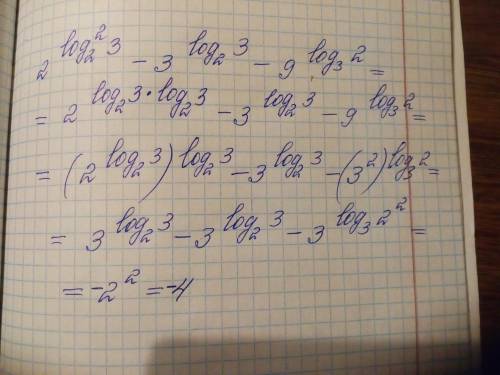 2^{log_2^2 3} - 3^{log_2 3} - 9^{log_3 2} =
= 2^{log_2 3 · log_2 3} - 3^{log_2 3} - 9^{log_3 2} =
= (2^{log_2 3})^{log_2 3} - 3^{log_2 3} - (3^2)^{log_3 2} =
= 3^{log_2 3} - 3^{log_2 3} - 3^{log_3 2^2} =
= -2^2 = -4